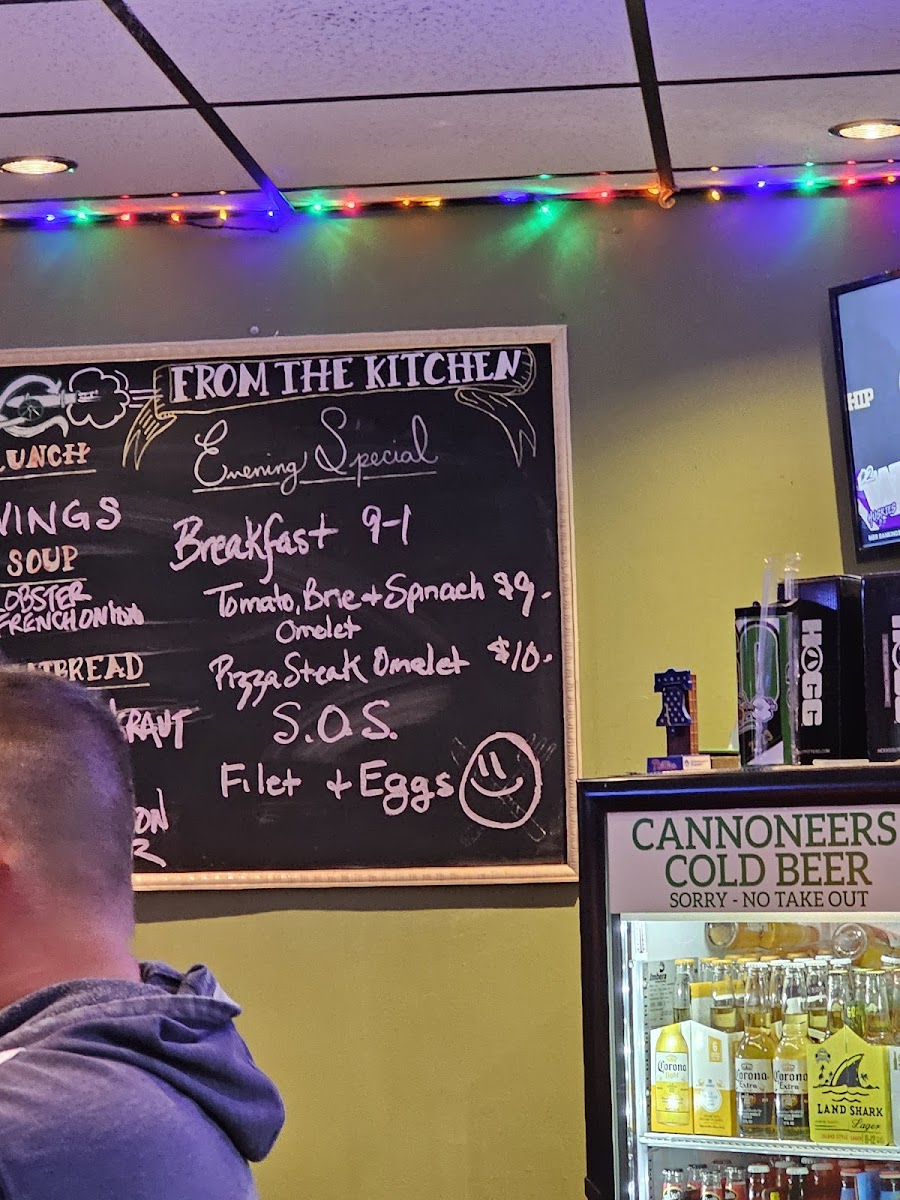 FROM THE KITCHEN
Evening Special
Breakfast 9-1
Tomato, Brie + Spinach $9.
Omelet
Pizza Steak Omelet $10.
S.O.S.
Filet + Eggs
LUNCH
WINGS
SOUP
LOBSTER
FRENCH ONION
TBREAD
RAUT
ON
R
HIP
HOGG
CANNONEERS
COLD BEER
SORRY - NO TAKE OUT
Imbera
Corona
Light
Corona
Extra
Corona
Extra
LAND SHARK
Lager